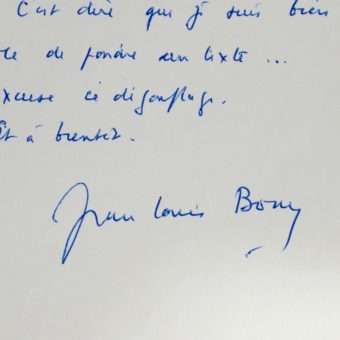 C'est dire que je suis bien
de pondre un texte ...
xcuse ce dégonflage.
Et à bientôt.
Jean Louis Bory